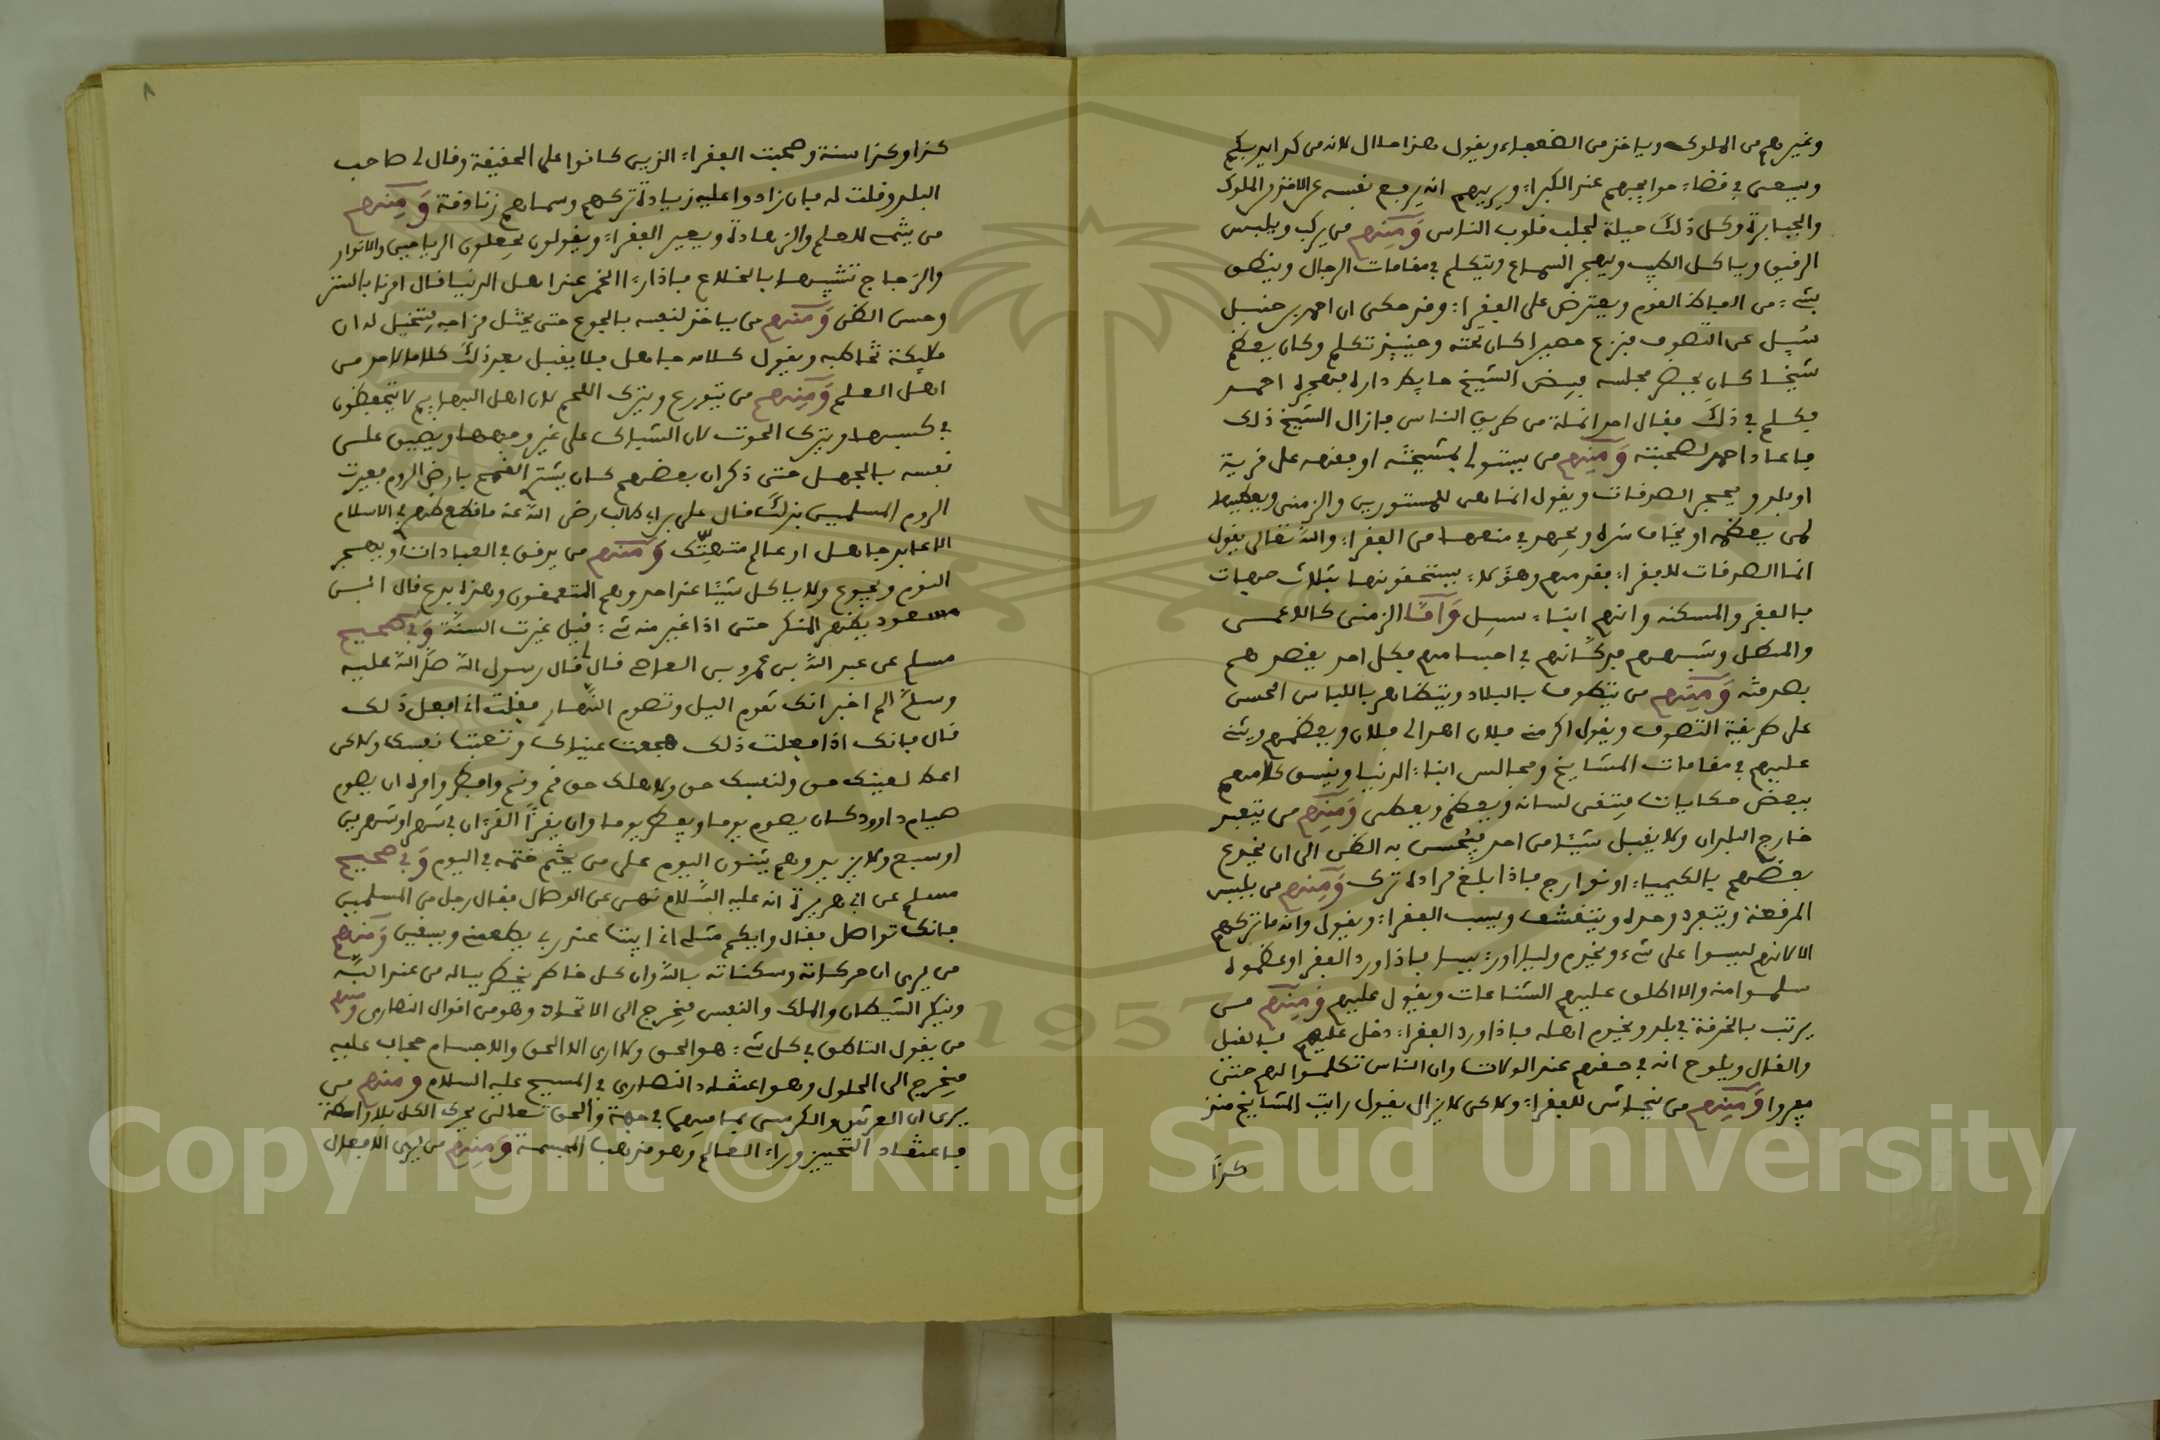 وغيرهم من الملوك وياخذ من الضعفاء ويقول هذا حلال لانه من كد ايديكم
ويسعى في قضاء حوايجهم عند الكبراء ويريهم انه يرفع نفسه عن الاخذ من الملوك
والجبابرة وكل ذلك حيلة لجلب قلوب الناس ومنهم من يركب ويلبس
الرفيق وياكل الطيب ويهجر السماع ويتكلم في مقامات الرجال وينطق
بشيء من الفاظ القوم ويعترض على الفقراء وقد حكى ان احمد بن حنبل
سيل عن التصوف فنزع حصيرا كان تحته وحينيذ تكلم وكان يعظم
شيخا كان يحضر مجلسه فبيض الشيخ حايط داره فهجره احمد
فكلم في ذلك فقال اخذ انملة من طريق الناس فازال الشيخ ذلك
فاعاد احمد لصحبته ومنهم من يستولي بمشيخته او بفقهه على قرية
او بلد ويجمع الصدقات ويقول انما هي للمستورين والزمنى ويعطيها
لمن يعظمه او يخاف شره ويجهد في منعها من الفقراء والله تعالى يقول
انما الصدقات للفقراء فقدمهم وهؤلاء يستحقونها بثلاث جهات
بالفقر والمسكنه وانهم ابناء سبيل واما الزمنى كالاعمى
والمبطل وشبههم فبركاتهم في اجسامهم فكل احد يقصدهم
بصدقته ومنهم من يتطوف بالبلاد ويتظاهر باللباس الحسن
على طريقة التصوف ويقول اكرمني فلان اهدالي فلان ويعظمهم ويثني
عليهم في مقامات المشايخ ومجالس ابناء الدنيا وينمق كلامهم
ببعض حكايات فيتقى لسانه ويعظم ويعطى ومنهم من يتعبد
خارج البلدان ولا يقبل شيئا من احد فيحسن به الظن الى ان يخدع
بعضهم بالكيمياء او نوارج فاذا بلغ مراده ترك ومنهم من يلبس
المرقعة وينفرد وحده ويتقشف ويسب الفقراء ويقول وانه ما تركهم
الا لانهم ليسوا على شيء ويخدم فاذا ورد الفقراء وعظموه
سلموا منه والا اطلق عليهم الشناعات ويقول عليهم ومنهم من
يرتب بالخرقة في بلد ويخدم اهله فاذا ورد الفقراء دخل عليهم بالقيل
والقال ويلوح انه في حقهم عند الولات وان الناس تكلموا لهم حتى
يفروا ومنهم من يتحاشى للفقراء ولاكن لا يزال يقول رايت المشايخ منذ
كذا
٨
كذا وكذا سنة وصحبت الفقراء الذين كانوا على الحقيقة وقال لي صاحب
البلد وقلت له فان زادوا عليه زيادة تركهم وسماهم زنادقة ومنهم
من ينتمي للعلم والزهادة ويعير الفقراء ويقولون يجعلون الرياحين والانوار
والزجاج تشبها بالخلاع فاذا راءا الخمر عند اهل الدنيا قال امرنا بالستر
وحسن الظن ومنهم من ياخذ لنفسه بالجوع حتى يختل مزاجه فيتخيل له ان
ملايكة تخاطبه ويقول كلامه جاهل فلا يقبل بعد ذلك كلاما لاحد من
اهل العلم ومنهم من يتورع ويترك اللحم لان اهل البهايم لا يتحفظون
في كسبها ويترك الحوت لان الشباك على غير وجهها ويضيق على
نفسه بالجهل حتى ذكر ان بعضهم كان يشتر القمح بارض الروم فعيرت
الروم المسلمين بذلك قال علي بن ابي طالب رضي الله عنه ما قطع ظهري في الاسلام
الا عابد جاهل او عالم متهتك ومنهم من يرفق في العبادات ويهجر
النوم ويجوع ولا ياكل شيئا عند احد وهم المتعمقون وهذه بدع قال ابن
مسعود يظهر المنكر حتى اذا غير منه شيء قيل غيرت السنة وفي صحيح
مسلم عن عبد الله بن عمرو بن العاص قال قال لي رسول الله صلى الله عليه
وسلم الم اخبر انك تقوم اليل وتصوم النهار فقلت اني افعل ذلك
قال فانك اذا فعلت ذلك هجمت عيناك وتعبت نفسك ولاكن
اعط لعينك حق ولنفسك حق ولاهلك حق قم ونم وافطر وامره ان يصوم
صيام داوود كان يصوم يوما ويفطر يوما وان يقرا القران في شهر او شهرين
او سبع ولا يزيد وهم يثنون اليوم على من يختم ختمه في اليوم وفي صحيح
مسلم عن ابي هريرة انه عليه السلام نهى عن الوصال فقال رجل من المسلمين
فانك تواصل فقال وايكم مثلي اني ابيت عند ربي يطعمني ويسقين ومنهم
من يرى ان حركاته وسكناته بالله وان كل خاطر يخطر بباله من عند الله
وينكر الشيطان والملك والنفس فيخرج الى الاتحاد وهو من اقوال النصارى ومنهم
من يقول الناطق في كل شيء هو الحق ولا ارى الا الحق والاجسام حجاب عليه
فيخرج الى الحلول وهو اعتقاد النصارى في المسيح عليه السلام ومنهم من
يرى ان العرش والكرسي بما فيهما في جهة والحق تعالى يحرك الكل بلا واسطة
فاعتقاد التحييز وراء العالم وهو مذهب المجسمة ومنهم من يرى الافعال
Copyright © King Saud University
1957